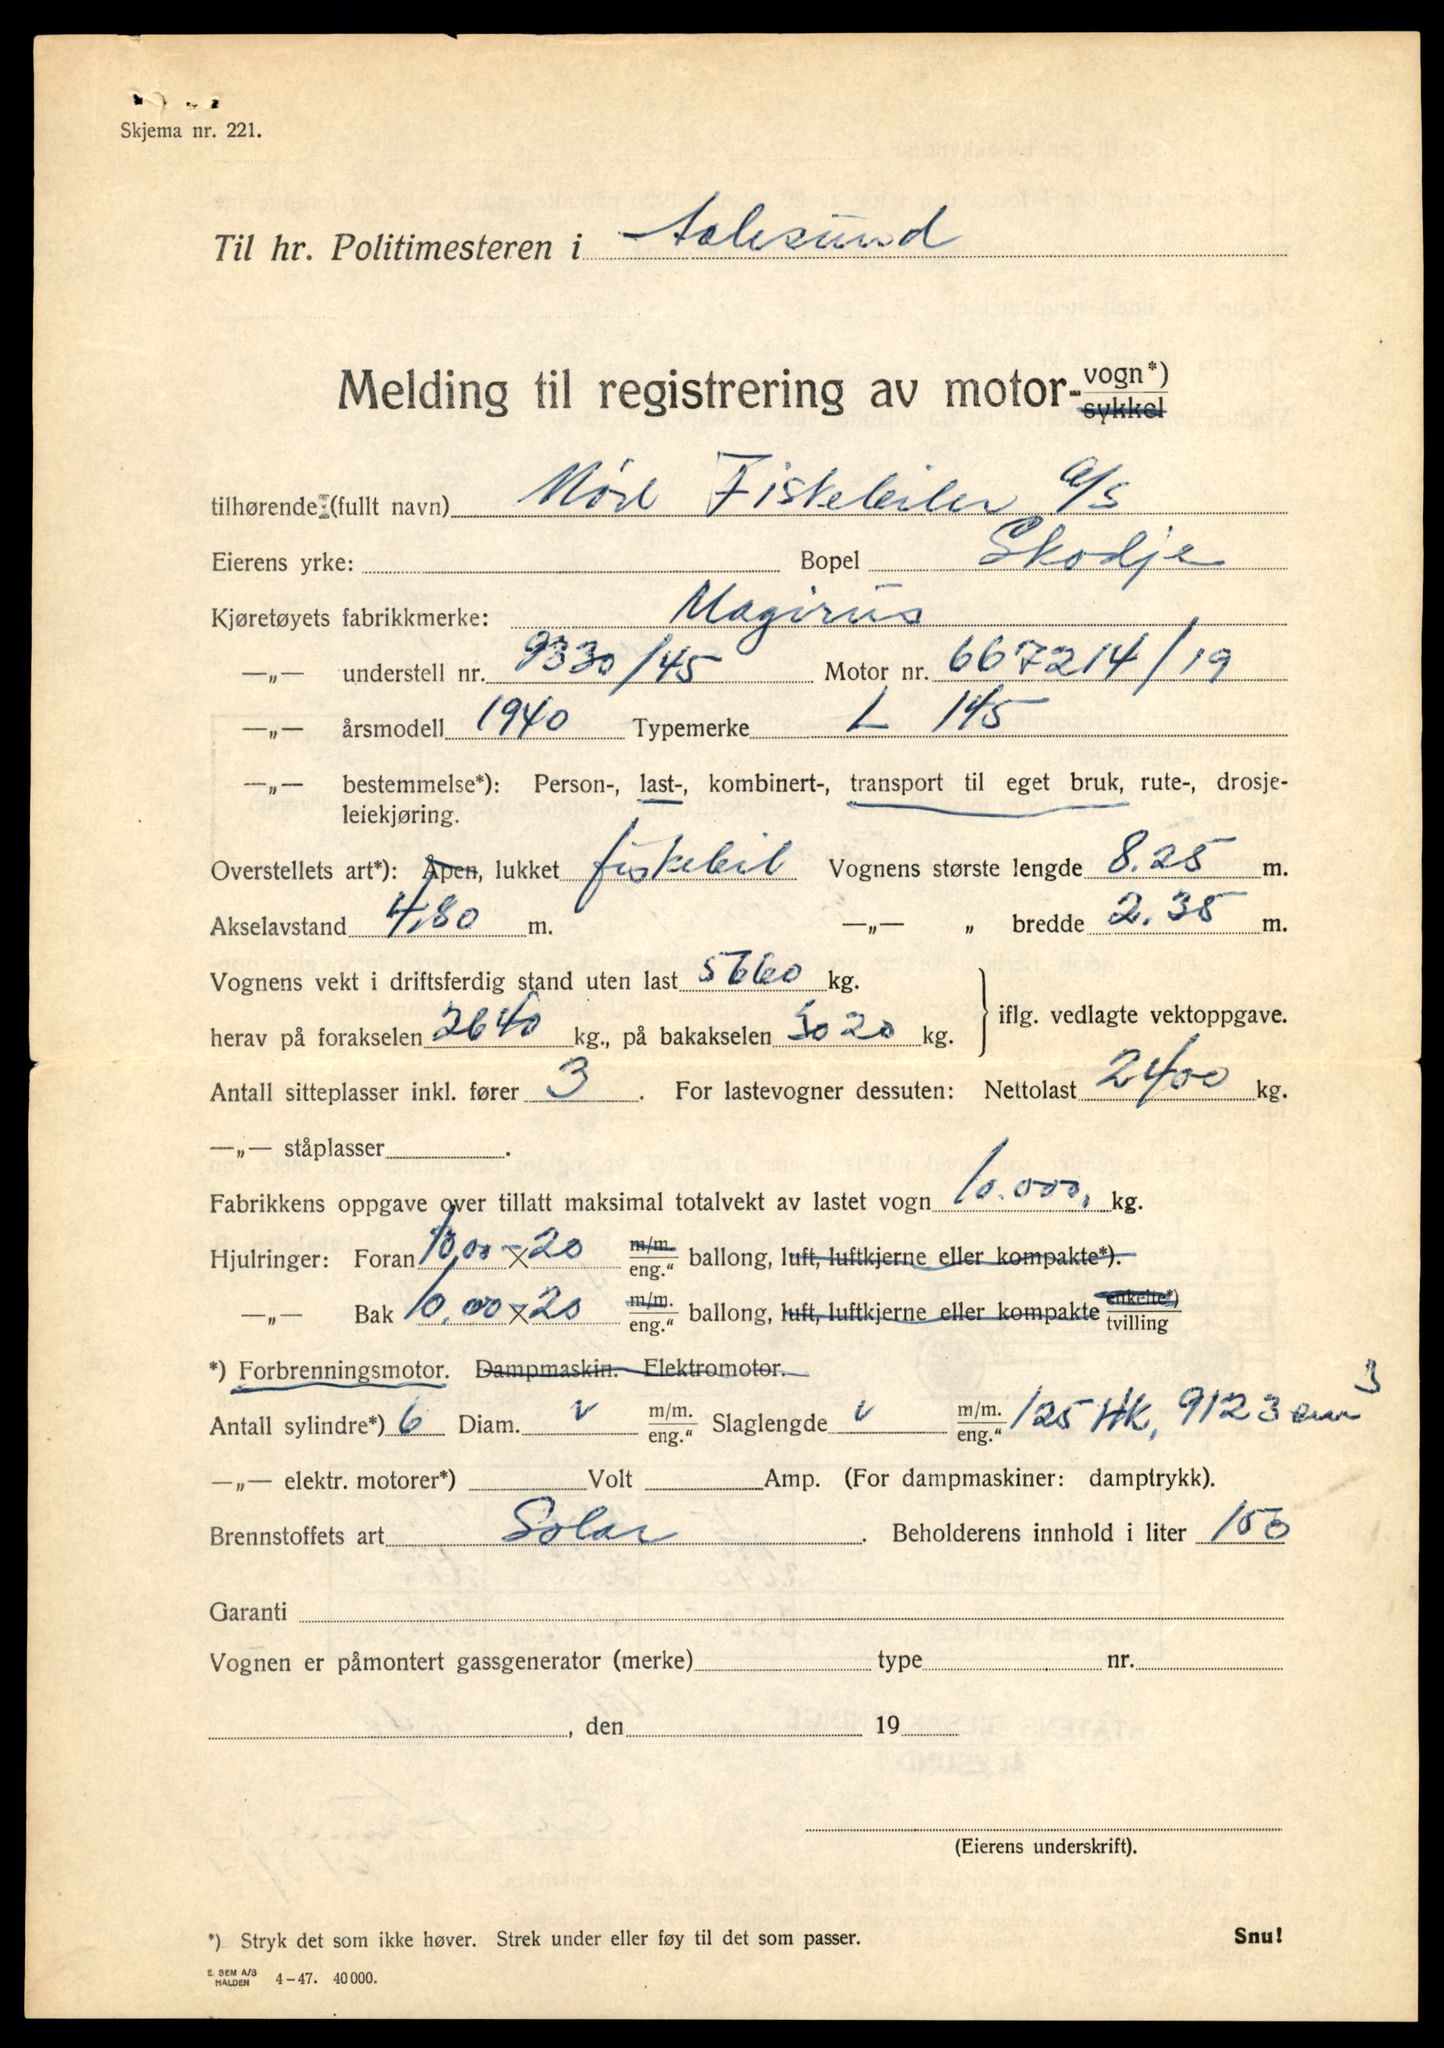 Skjema nr. 221.
Til hr. Politimesteren i Aalesund
Melding til registrering av motor-vogn*)
sykkel
tilhørende: (fullt navn) Møre Fiskebiler A/S
Eierens yrke: Bopel Skodje
Kjøretøyets fabrikkmerke: Magirus
—„— understell nr. 9330/45 Motor nr. 667214/19
—„— årsmodell 1940 Typemerke L 145
—„— bestemmelse*): Person-, last-, kombinert-, transport til eget bruk, rute-, drosje-
leiekjøring.
Overstellets art*): Åpen, lukket fiskebil Vognens største lengde 8.25 m.
Akselavstand 4,80 m. —„— „ bredde 2.35 m.
Vognens vekt i driftsferdig stand uten last 5660 kg.
herav på forakselen 2640 kg., på bakakselen 3020 kg. iflg. vedlagte vektoppgave.
Antall sitteplasser inkl. fører 3. For lastevogner dessuten: Nettolast 2400 kg.
—„— ståplasser .
Fabrikkens oppgave over tillatt maksimal totalvekt av lastet vogn 10.000, kg.
Hjulringer: Foran 10,00 × 20 m/m. eng.“ ballong, luft, luftkjerne eller kompakte*).
—„— Bak 10,00 × 20 m/m. eng.“ ballong, luft, luftkjerne eller kompakte enkelte*) tvilling
*) Forbrenningsmotor. Dampmaskin. Elektromotor.
Antall sylindre*) 6 Diam. v m/m. eng.“ Slaglengde v m/m. eng.“ 125 HK, 9123 cm3
—„— elektr. motorer*) Volt Amp. (For dampmaskiner: damptrykk).
Brennstoffets art Solar. Beholderens innhold i liter 150
Garanti
Vognen er påmontert gassgenerator (merke) type nr.
, den 19
(Eierens underskrift).
*) Stryk det som ikke høver. Strek under eller føy til det som passer. Snu!
E. SEM A/S
HALDEN 4–47. 40 000.